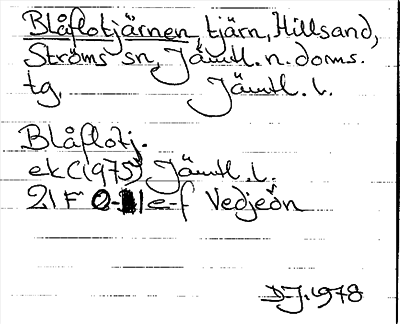 Blåflotjärnen, tjärn, Hillsand,
Ströms sn, Jämtl. n. doms.
tg. Jämtl. l.
Blåflotj.
ek C(1975) Jämtl. l.
21 F e-f Vedjeön
D-J. 1978